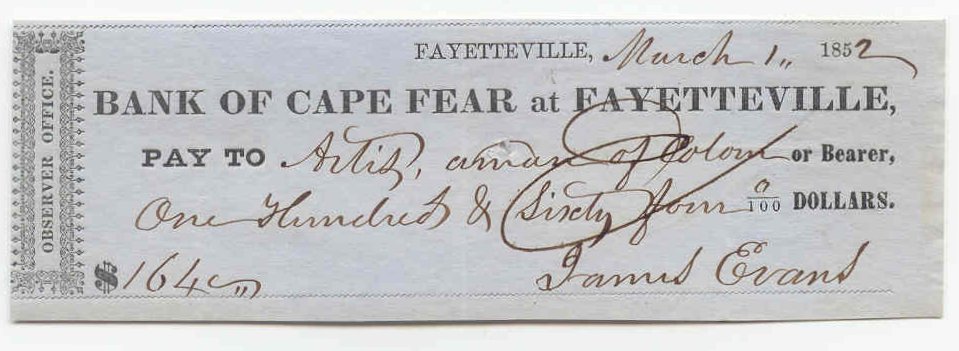 OBSERVER OFFICE.
FAYETTEVILLE, March 1,, 1852
BANK OF CAPE FEAR at FAYETTEVILLE,
PAY TO Artis, a man of Colour or Bearer,
One Hundred & Sixty four 0/100 DOLLARS.
$164,,
James Evans